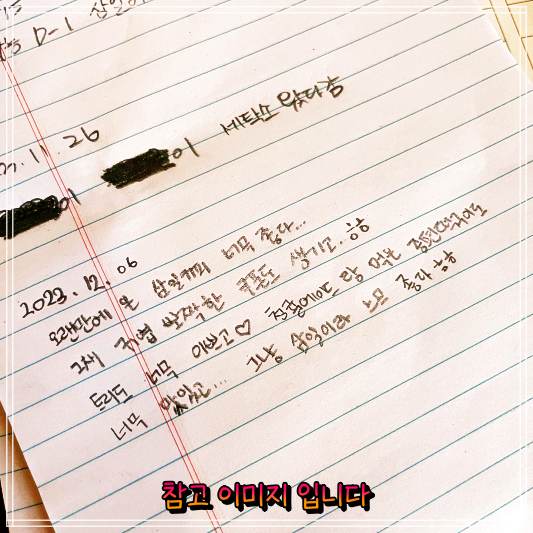 D-1
11.26
이 이 세탁소 왔다감
2023. 12. 06
오랜만에 온 삼일커피 너무 좋다...
그새 귀염 뽀짝한 쿠폰도 생기고. ㅎㅎ
트리도 너무 이쁘고♡ 청귤에이드랑 먹은
너무 맛있고... 그냥 삼일이라 너무 좋다 ㅎㅎ
참고 이미지 입니다